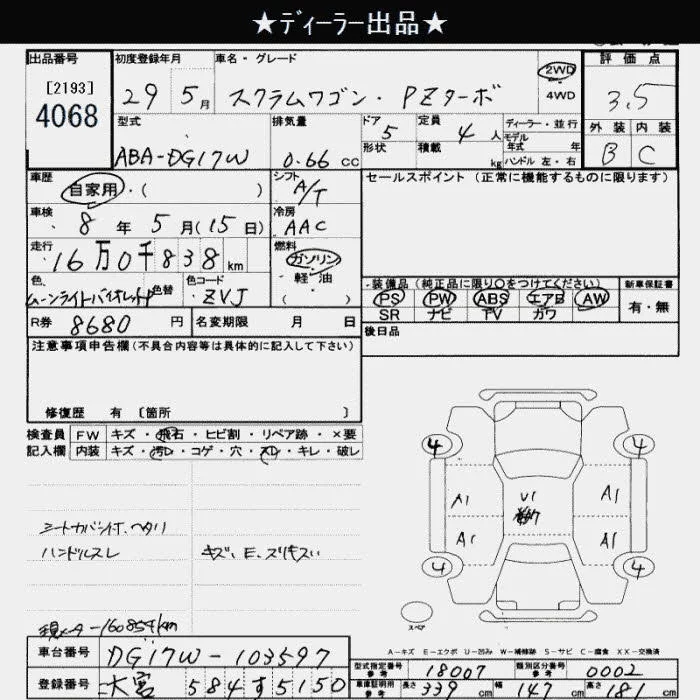 ★ディーラー出品★
出品番号 初度登録年月 車名・グレード 2WD 4WD 評価点
[2193]
4068
29 5月 スクラムワゴン・PZターボ 3.5
型式 排気量 ドア 5 定員 4人 ディーラー・並行 外装 内装
形状 積載 kg モデル年式 年
ハンドル 左・右
ABA-DG17W 0.66cc B C
車歴 自家用・( ) シフト A/T セールスポイント(正常に機能するものに限ります)
車検 8年 5月(15日) 冷房 AAC
走行 16万0千838km 燃料 ガソリン 軽・油 ( )
色 ムーンライトバイオレットP 色替 色コード ZVJ
装備品(純正品に限り○をつけてください) 新車保証書
PS PW ABS エアB AW 有・無
SR ナビ TV カワ
R券 8680円 名変期限 月 日 後日品
注意事項申告欄(不具合内容等は具体的に記入して下さい)
修復歴 有 [箇所 ]
検査員 FW キズ・飛石・ヒビ割・リペア跡・×要
記入欄 内装 キズ・汚レ・コゲ・穴・スレ・キレ・破レ
4 4
A1 U1 A1
A1 A1
4 4
シートカバー付、ヘタリ
ハンドルスレ キズ、E、スリキズ
現メーター160854km
スペア
A-キズ E-エクボ U-凹み W-補修跡 S-サビ C-腐食 XX-交換済
車台番号 DG17W-103597
型式指定番号 参考 18007 類別区分番号 参考 0002
登録番号 大宮 584す5150
車庫証明用 参考 長さ 339cm 幅 147cm 高さ 181cm